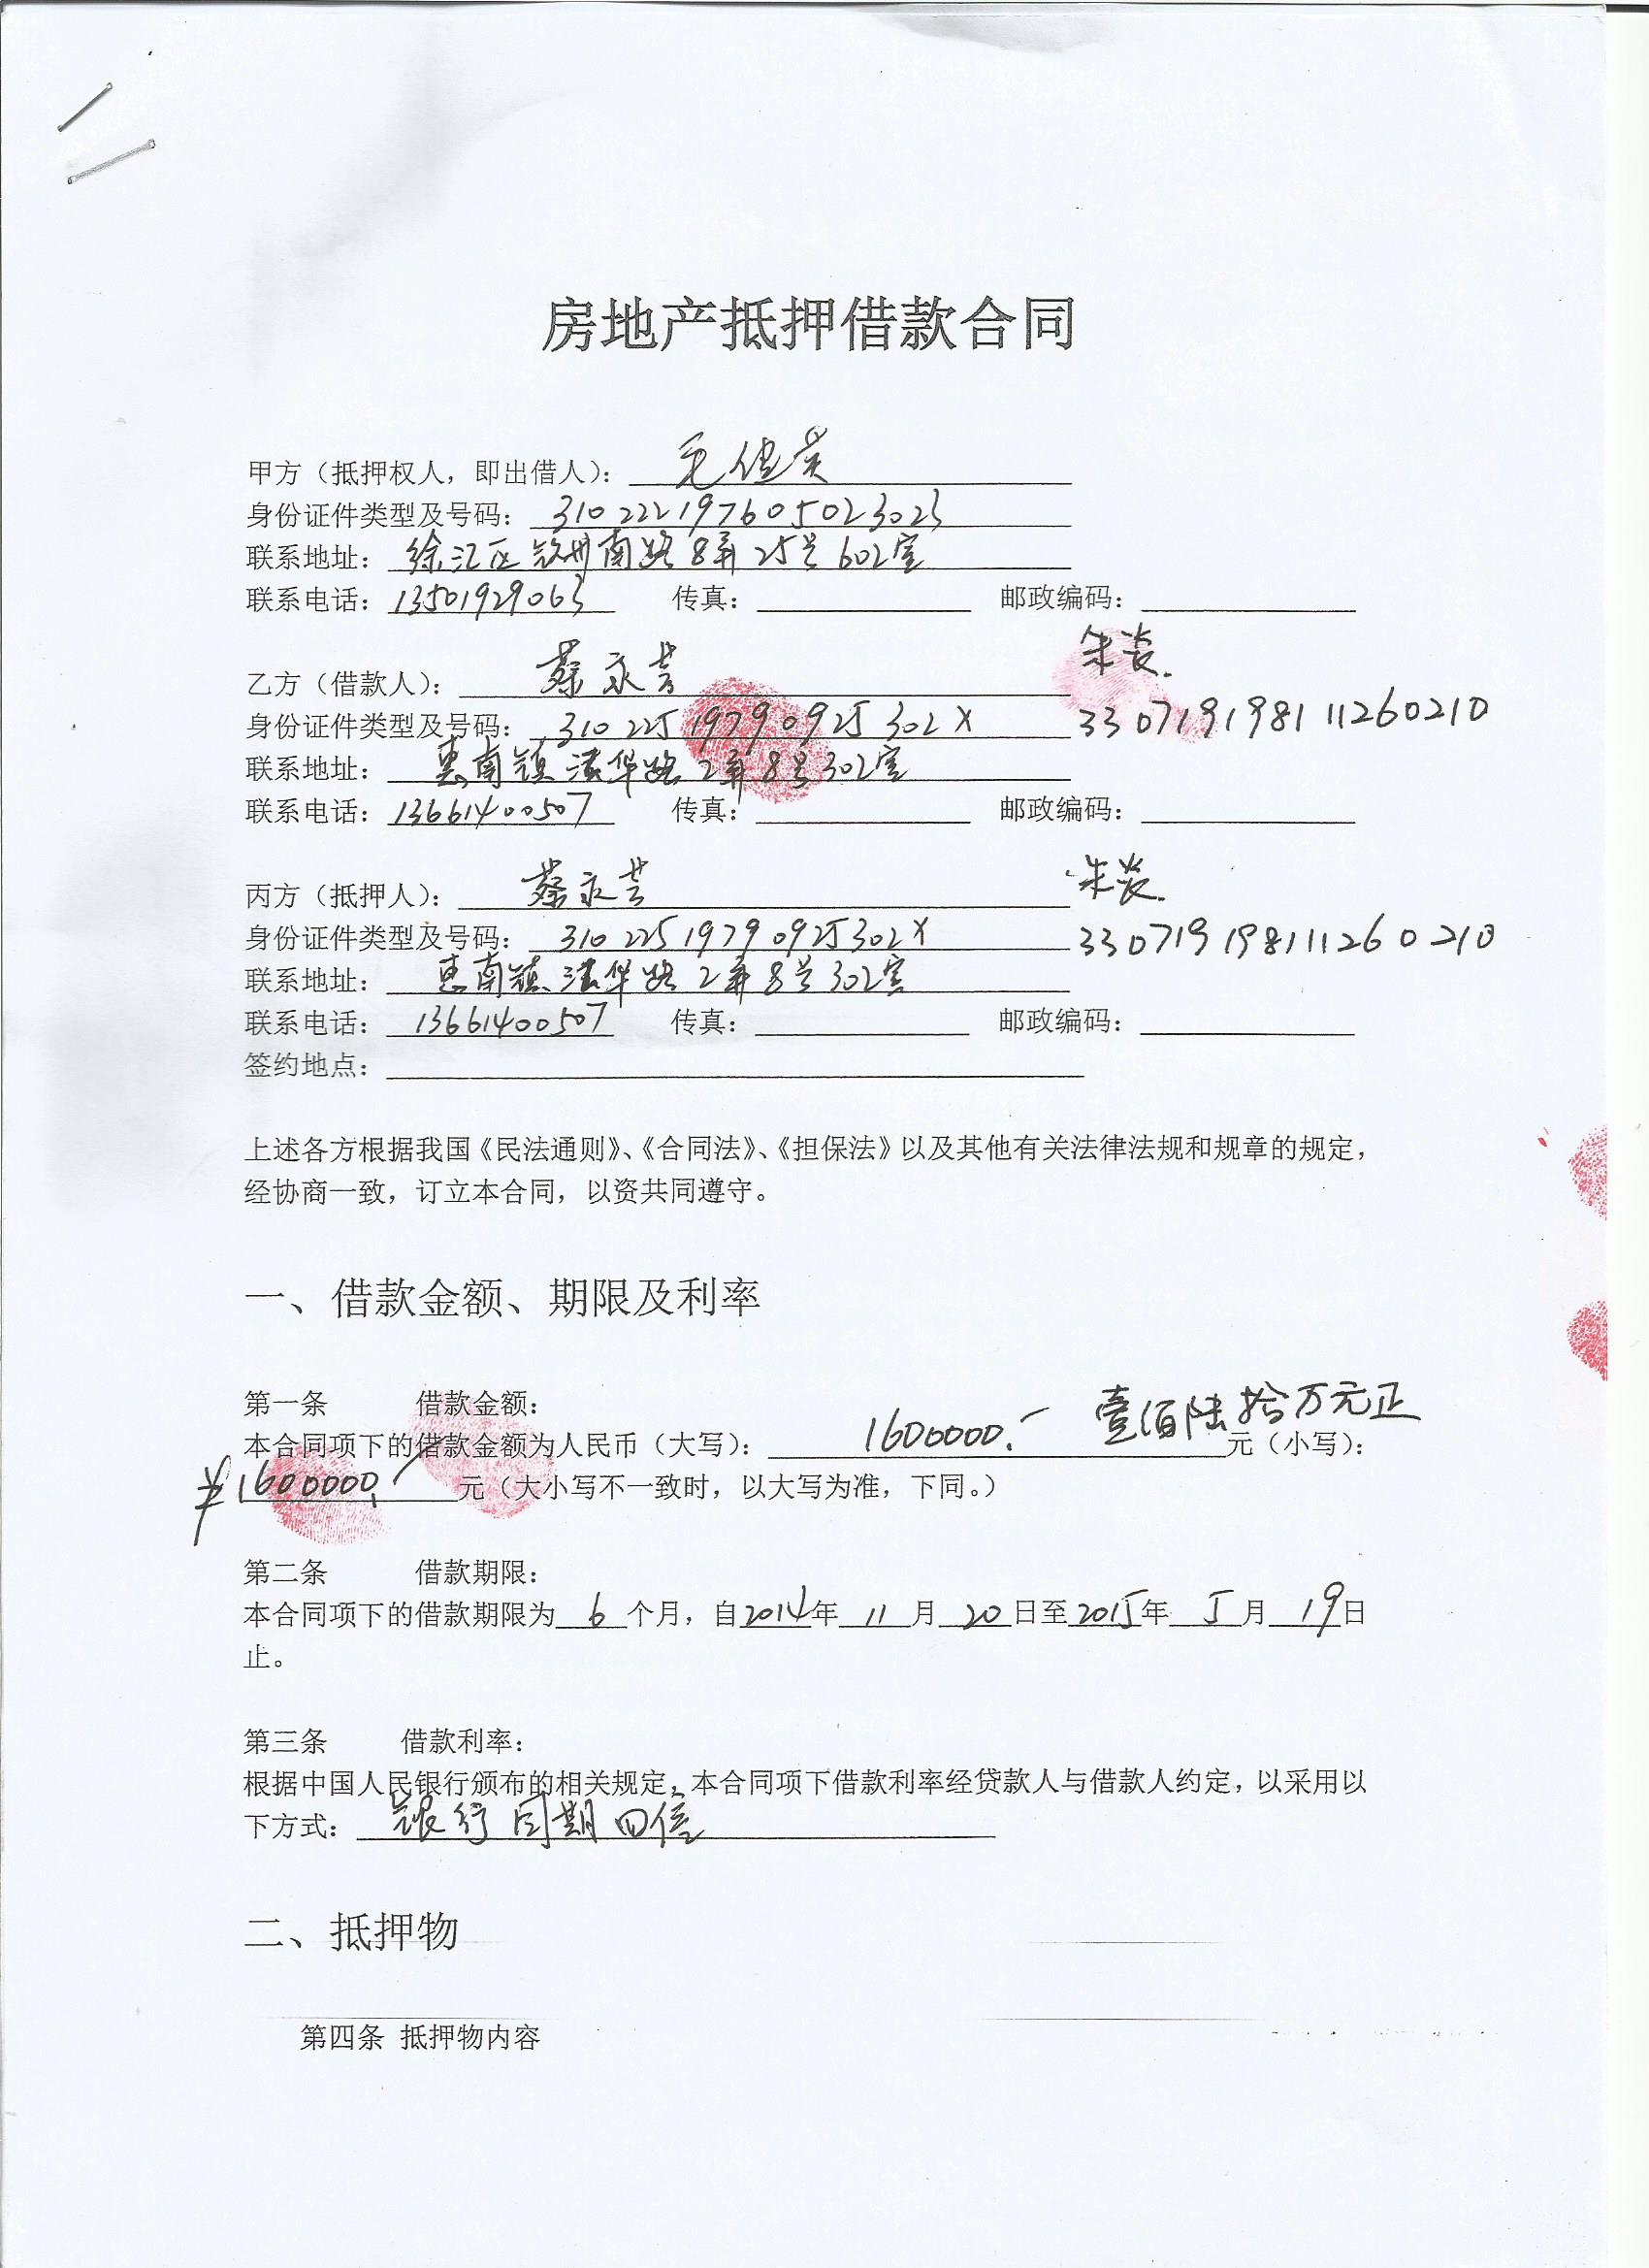 房地产抵押借款合同
甲方（抵押权人，即出借人）：毛
身份证件类型及号码：310222197605023023
联系地址：徐汇区钦州南路8弄25号602室
联系电话：13501929063 传真： 邮政编码：
朱炎.
乙方（借款人）：蔡永芸
身份证件类型及号码：31022519790925302X 330719198111260210
联系地址：惠南镇 华路2弄8号302室
联系电话：13661400507 传真： 邮政编码：
丙方（抵押人）：蔡永芸 朱炎.
身份证件类型及号码：31022519790925302X 330719198111260210
联系地址：惠南镇 华路2弄8号302室
联系电话：13661400507 传真： 邮政编码：
签约地点：
上述各方根据我国《民法通则》、《合同法》、《担保法》以及其他有关法律法规和规章的规定，
经协商一致，订立本合同，以资共同遵守。
一、借款金额、期限及利率
第一条 借款金额：
本合同项下的借款金额为人民币（大写）：1600000.- 壹佰陆拾万元正 元（小写）：
¥1600000.- 元（大小写不一致时，以大写为准，下同。）
第二条 借款期限：
本合同项下的借款期限为6个月，自2014年11月20日至2015年5月19日
止。
第三条 借款利率：
根据中国人民银行颁布的相关规定，本合同项下借款利率经贷款人与借款人约定，以采用以
下方式：银行同期四倍
二、抵押物
第四条 抵押物内容